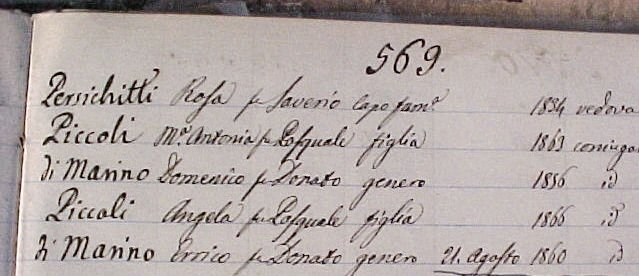 569.
Persichitti Rosa fu Saverio Capo famª 1834 vedova
Piccoli Mª Antonia fu Pasquale figlia 1863 coniuga
di Marino Domenico fu Donato genero 1856 id
Piccoli Angela fu Pasquale figlia 1866 id
di Marino Errico fu Donato genero 21. Agosto 1860 id